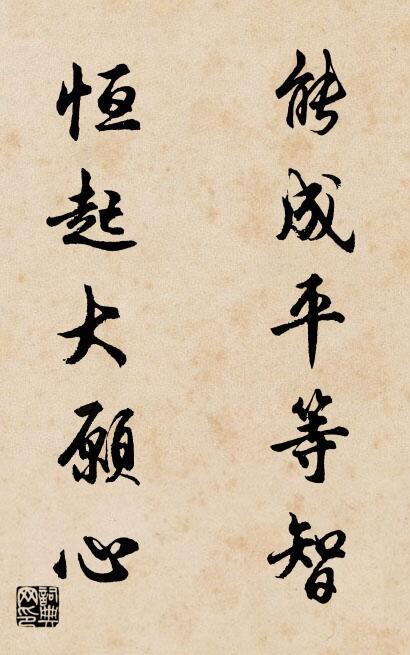 能成平等智
恒起大願心
詞典
网印